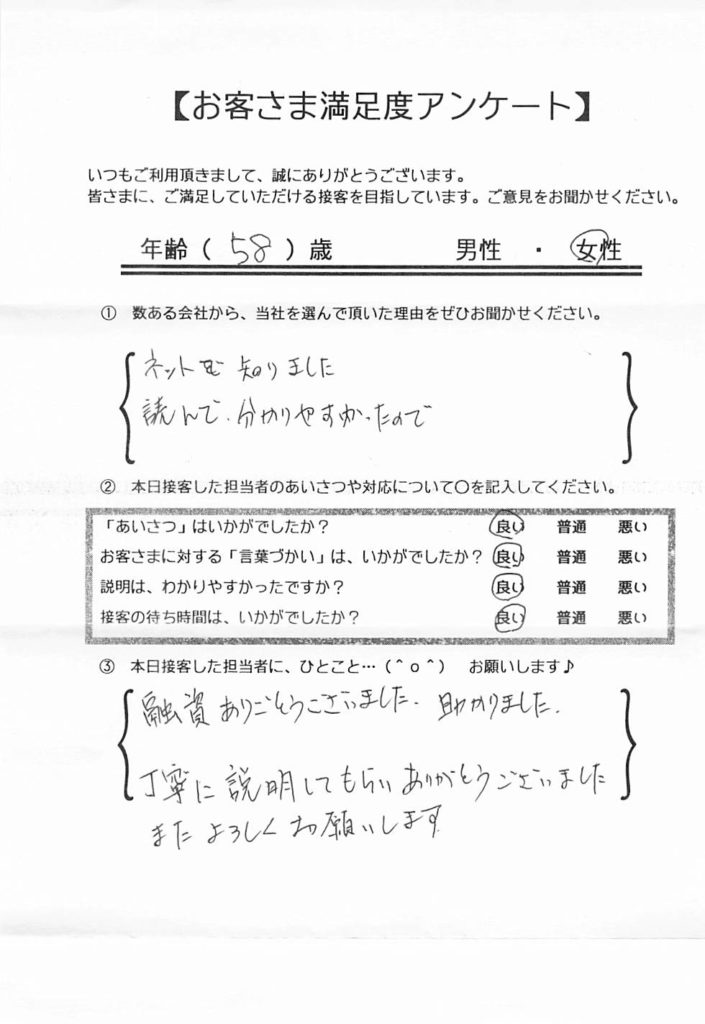 【お客さま満足度アンケート】
いつもご利用頂きまして、誠にありがとうございます。
皆さまに、ご満足していただける接客を目指しています。ご意見をお聞かせください。
年齢（ 58 ）歳 男性 ・ 女性
① 数ある会社から、当社を選んで頂いた理由をぜひお聞かせください。
ネットで 知りました
読んで、分かりやすかったので
② 本日接客した担当者のあいさつや対応について〇を記入してください。
「あいさつ」はいかがでしたか？ 良い 普通 悪い
お客さまに対する「言葉づかい」は、いかがでしたか？ 良い 普通 悪い
説明は、わかりやすかったですか？ 良い 普通 悪い
接客の待ち時間は、いかがでしたか？ 良い 普通 悪い
③ 本日接客した担当者に、ひとこと…（＾ｏ＾） お願いします♪
融資 ありごとうございました. 助かりました.
丁寧に 説明してもらい ありがとうございました
また よろしく お願いします